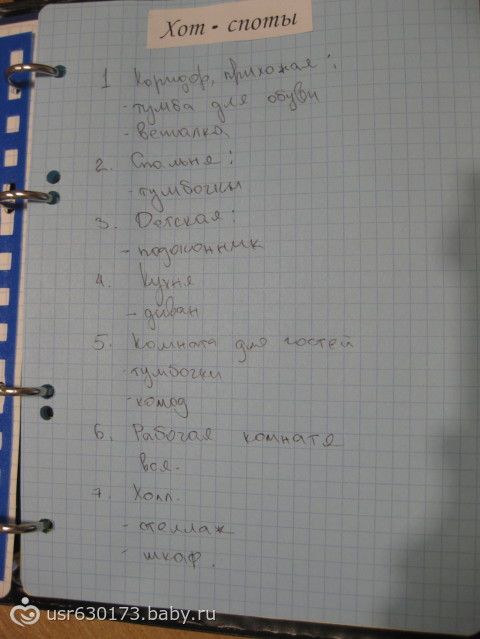 Хот - споты
1 Коридор, прихожая:
- тумба для обуви
- вешалка
2. Спальня:
- тумбочки
3. Детская:
- подоконник
4. Кухня
- диван
5. Комната для гостей
- тумбочки
- комод
6. Рабочая комната
вся.
7. Холл.
- стеллаж
- шкаф.
usr630173.baby.ru